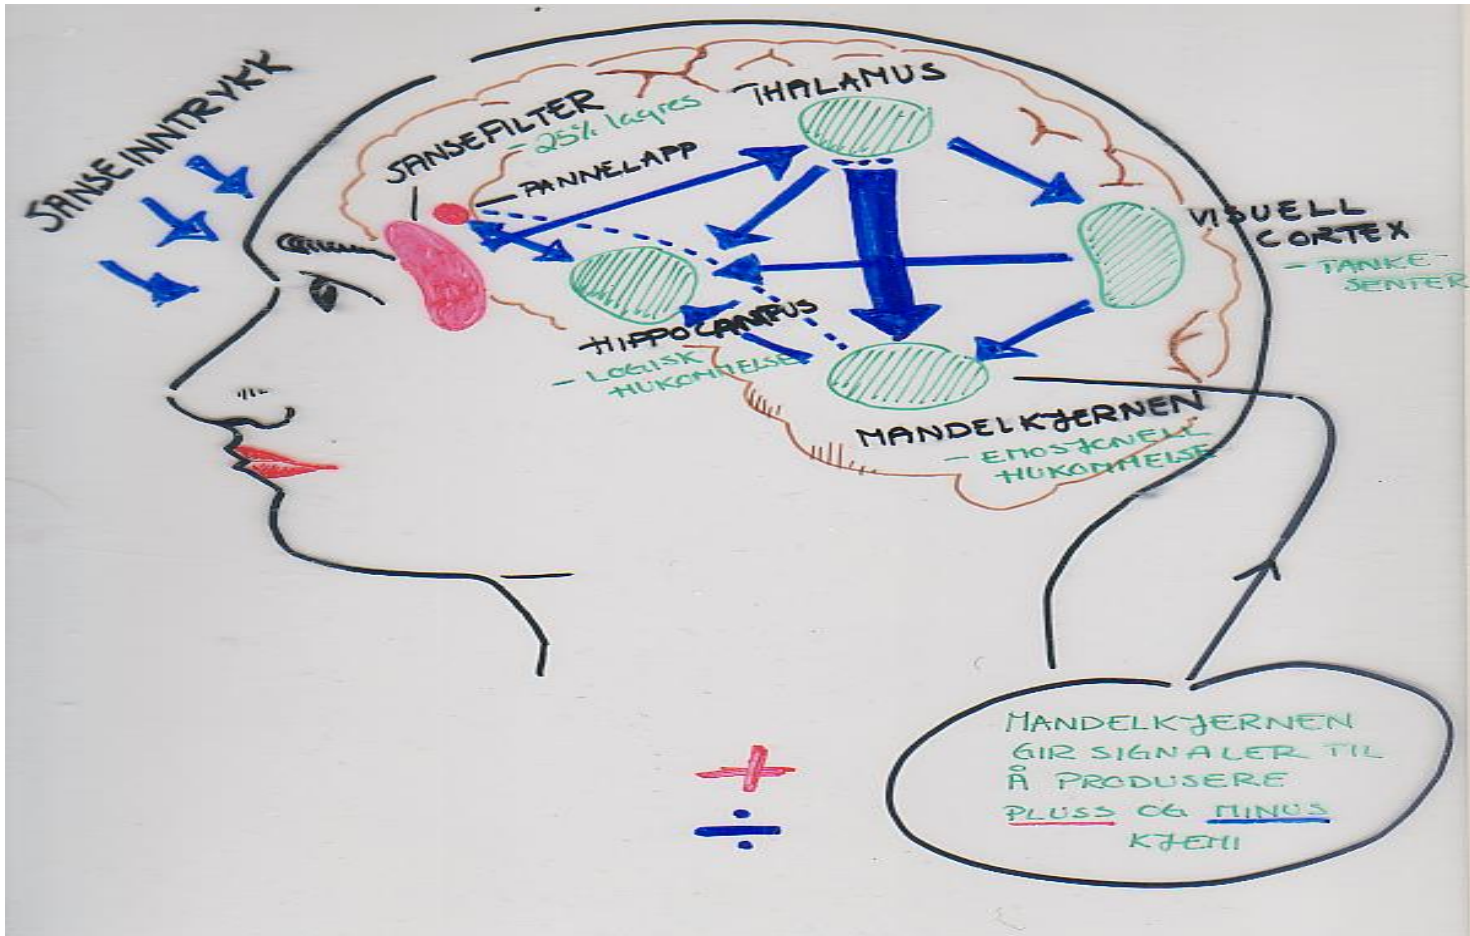 SANSEINNTRYKK
SANSEFILTER
- 25% lagres
PANNELAPP
THALAMUS
VISUELL
CORTEX
- TANKE-
SENTER
HIPPOCAMPUS
- LOGISK
HUKOMMELSE
MANDELKJERNEN
- EMOSJONELL
HUKOMMELSE
+
÷
MANDELKJERNEN
GIR SIGNALER TIL
Å PRODUSERE
PLUSS OG MINUS
KJEMI